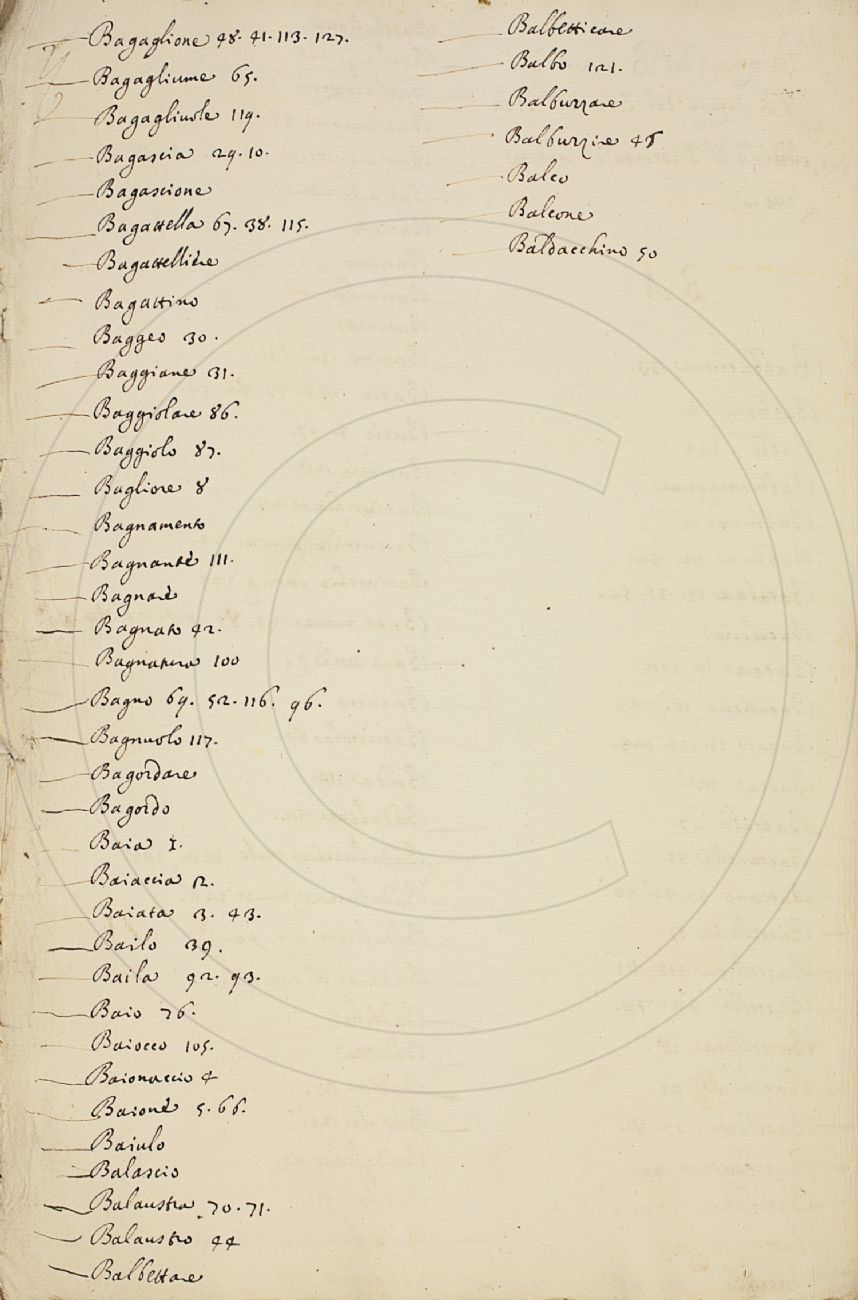 Bagaglione 48. 41. 113. 127.
Bagagliume 65.
Bagagliuole 119.
Bagascia 29. 10.
Bagascione
Bagattella 67. 38. 115.
Bagattelliere
Bagattino
Baggeo 30.
Baggiane 31.
Baggiolare 86.
Baggiolo 87.
Bagliore 8
Bagnamento
Bagnante 111.
Bagnare
Bagnato 42.
Bagnatura 100
Bagno 69. 52. 116. 96.
Bagnuolo 117.
Bagordare
Bagordo
Baia 1.
Baiaccia 2.
Baiata 3. 43.
Bailo 39.
Baila 92. 93.
Baio 76.
Baiocco 105.
Baionaccio 4
Baione 5. 66.
Baiulo
Balascio
Balaustra 70. 71.
Balaustro 44
Balbettare
Balbetticare
Balbo 121.
Balbuzzare
Balbuzzire 45
Balco
Balcone
Baldacchino 50